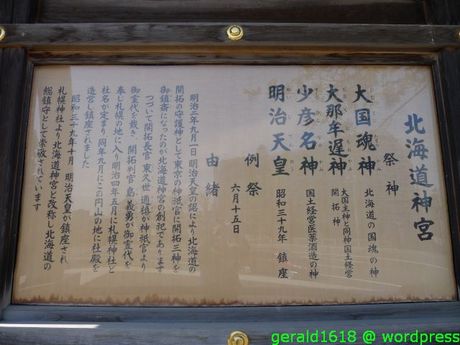 北海道神宮
祭神
大国魂神 北海道の国魂の神
大那牟遅神 大国主神と同神国土経営
開拓神
少彦名神 国土経営医薬酒造の神
明治天皇 昭和三十九年 鎮座
例祭 六月十五日
由緒
明治二年九月一日 明治天皇の詔により北海道の
開拓の守護神として東京の神祇官に開拓三神を
御鎮斎になったのが北海道神宮の創祀であります
つづいて開拓長官 東久世 通禧が神祇官より
御霊代を戴き 開拓判官 島 義勇が御霊代を
奉じ札幌の地に入り明治四年五月に札幌神社と
社名が定まり 同年九月にこの円山の地に社殿を
造営し鎮座されました
昭和三十九年十月 明治天皇が鎮座され
札幌神社より北海道神宮と改称し 北海道の
総鎮守として崇敬されています
gerald1618 @ wordpress